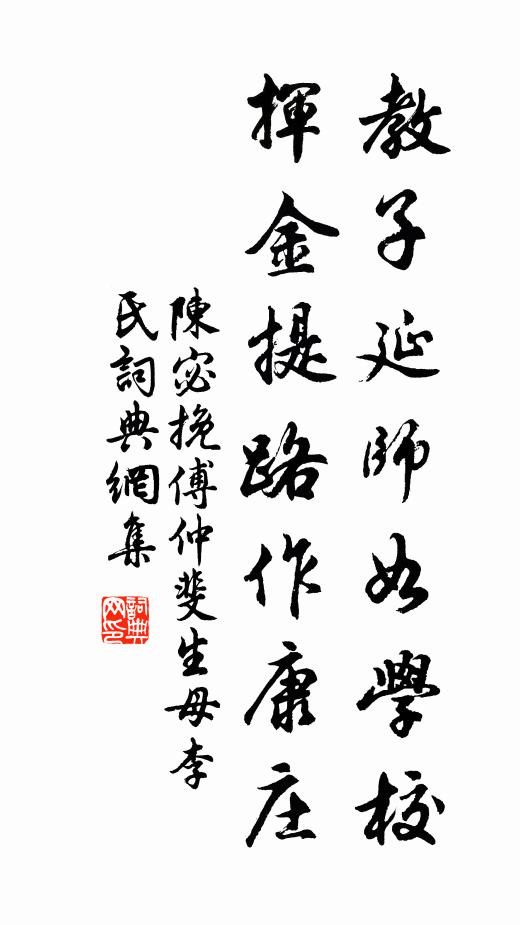 教子延師如學校
揮金提路作康庄
陳宓挽傅仲斐生母李
民詞典網集
詞典
网印